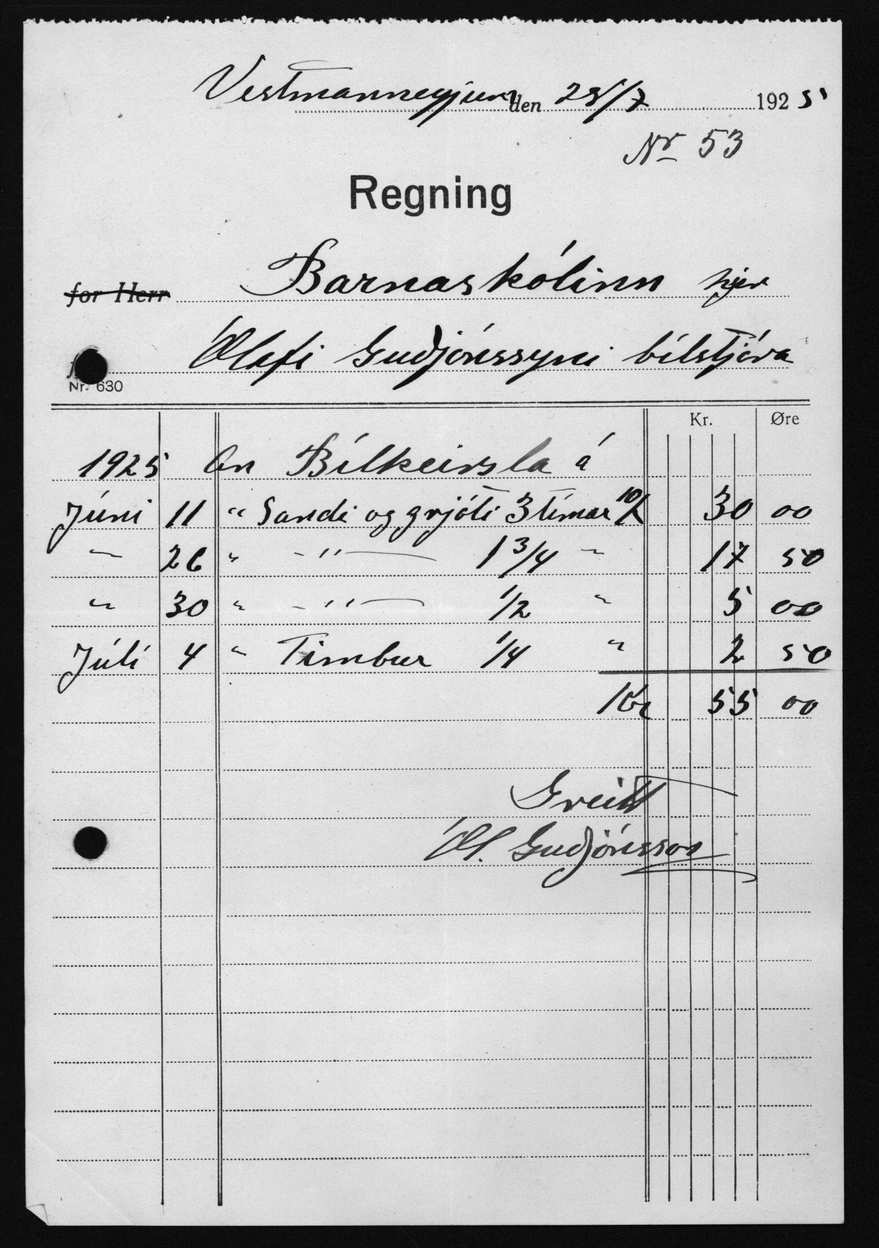 Vestmannaeyjum den 25/7 1925
Nr 53
Regning
for Herr Barnaskólinn hjer
Ólafi Guðjónssyni bílstjóra
Nr. 630
Kr. Øre
1925 An Bílkeirsla á
Júní 11 " Sandi og grjóti 3 tímar 10/ 30 00
" 26 " - " - 1 3/4 " 17 50
" 30 " - " - 1/2 " 5 00
Júlí 4 " Timbur 1/4 " 2 50
Kr 55 00
Greitt
Ól. Guðjónsson